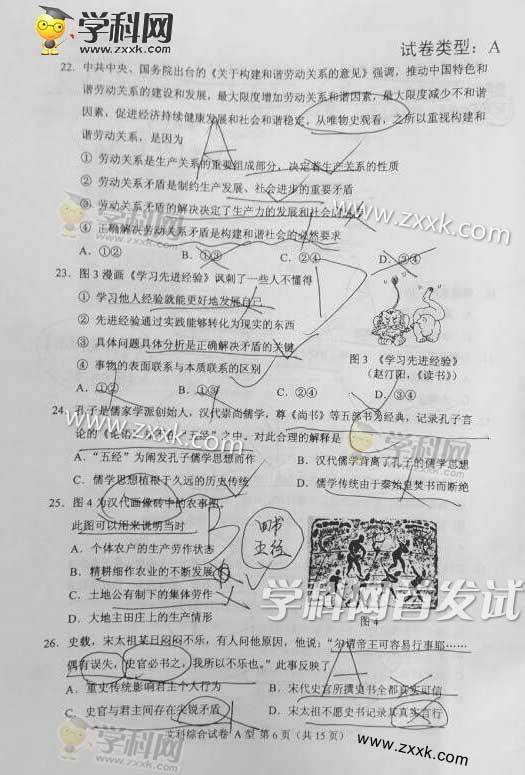 学科网
www.zxxk.com
试卷类型：A
22. 中共中央、国务院出台的《关于构建和谐劳动关系的意见》强调，推动中国特色和
谐劳动关系的建设和发展，最大限度增加劳动关系和谐因素，最大限度减少不和谐
因素，促进经济持续健康发展和社会和谐稳定。从唯物史观看，之所以重视构建和
谐劳动关系，是因为
① 劳动关系是生产关系的重要组成部分，决定着生产关系的性质
② 劳动关系矛盾是制约生产发展、社会进步的重要矛盾
③ 劳动关系矛盾的解决决定了生产力的发展和社会
④ 正确解决劳动关系矛盾是构建和谐社会的必然要求
A．①② B．①③ C．②④ D．③④
23. 图3漫画《学习先进经验》讽刺了一些人不懂得
① 学习他人经验就能更好地发展自己
② 先进经验通过实践能够转化为现实的东西
③ 具体问题具体分析是正确解决矛盾的关键
④ 事物的表面联系与本质联系的区别
图3 《学习先进经验》
（赵汀阳，《读书》）
A．①② B．①③ C．②④ D．③④
24. 孔子是儒家学派创始人，汉代崇尚儒学，尊《尚书》等五部书为经典，记录孔子言
论的《论语》却不在“五经”之中。对此合理的解释是
A．“五经”为阐发孔子儒学思想而作 B．汉代儒学背离了孔子的儒学思想
C．儒学思想植根于久远的历史传统 D．儒学传统由于秦始皇焚书而断绝
25. 图4为汉代画像砖中的农事图。
此图可以用来说明当时
四书
五经
A．个体农户的生产劳作状态
B．精耕细作农业的不断发展
C．土地公有制下的集体劳作
D．大地主田庄上的生产情形
图4
学科网首发试
26. 史载，宋太祖某日闷闷不乐，有人问他原因，他说：“尔谓帝王可容易行事耶……
偶有误失，史官必书之，我所以不乐也。”此事反映了
A．重史传统影响君主个人行为 B．宋代史官所撰史书全都真实可信
C．史官与君主间存在尖锐矛盾 D．宋太祖不愿史书记录其真实言行
文科综合试卷 A型 第6页（共15页）
学科网
www.zxxk.com
www.zxxk.com
学科网
www.zxxk.com
学科网
www.zxxk.com